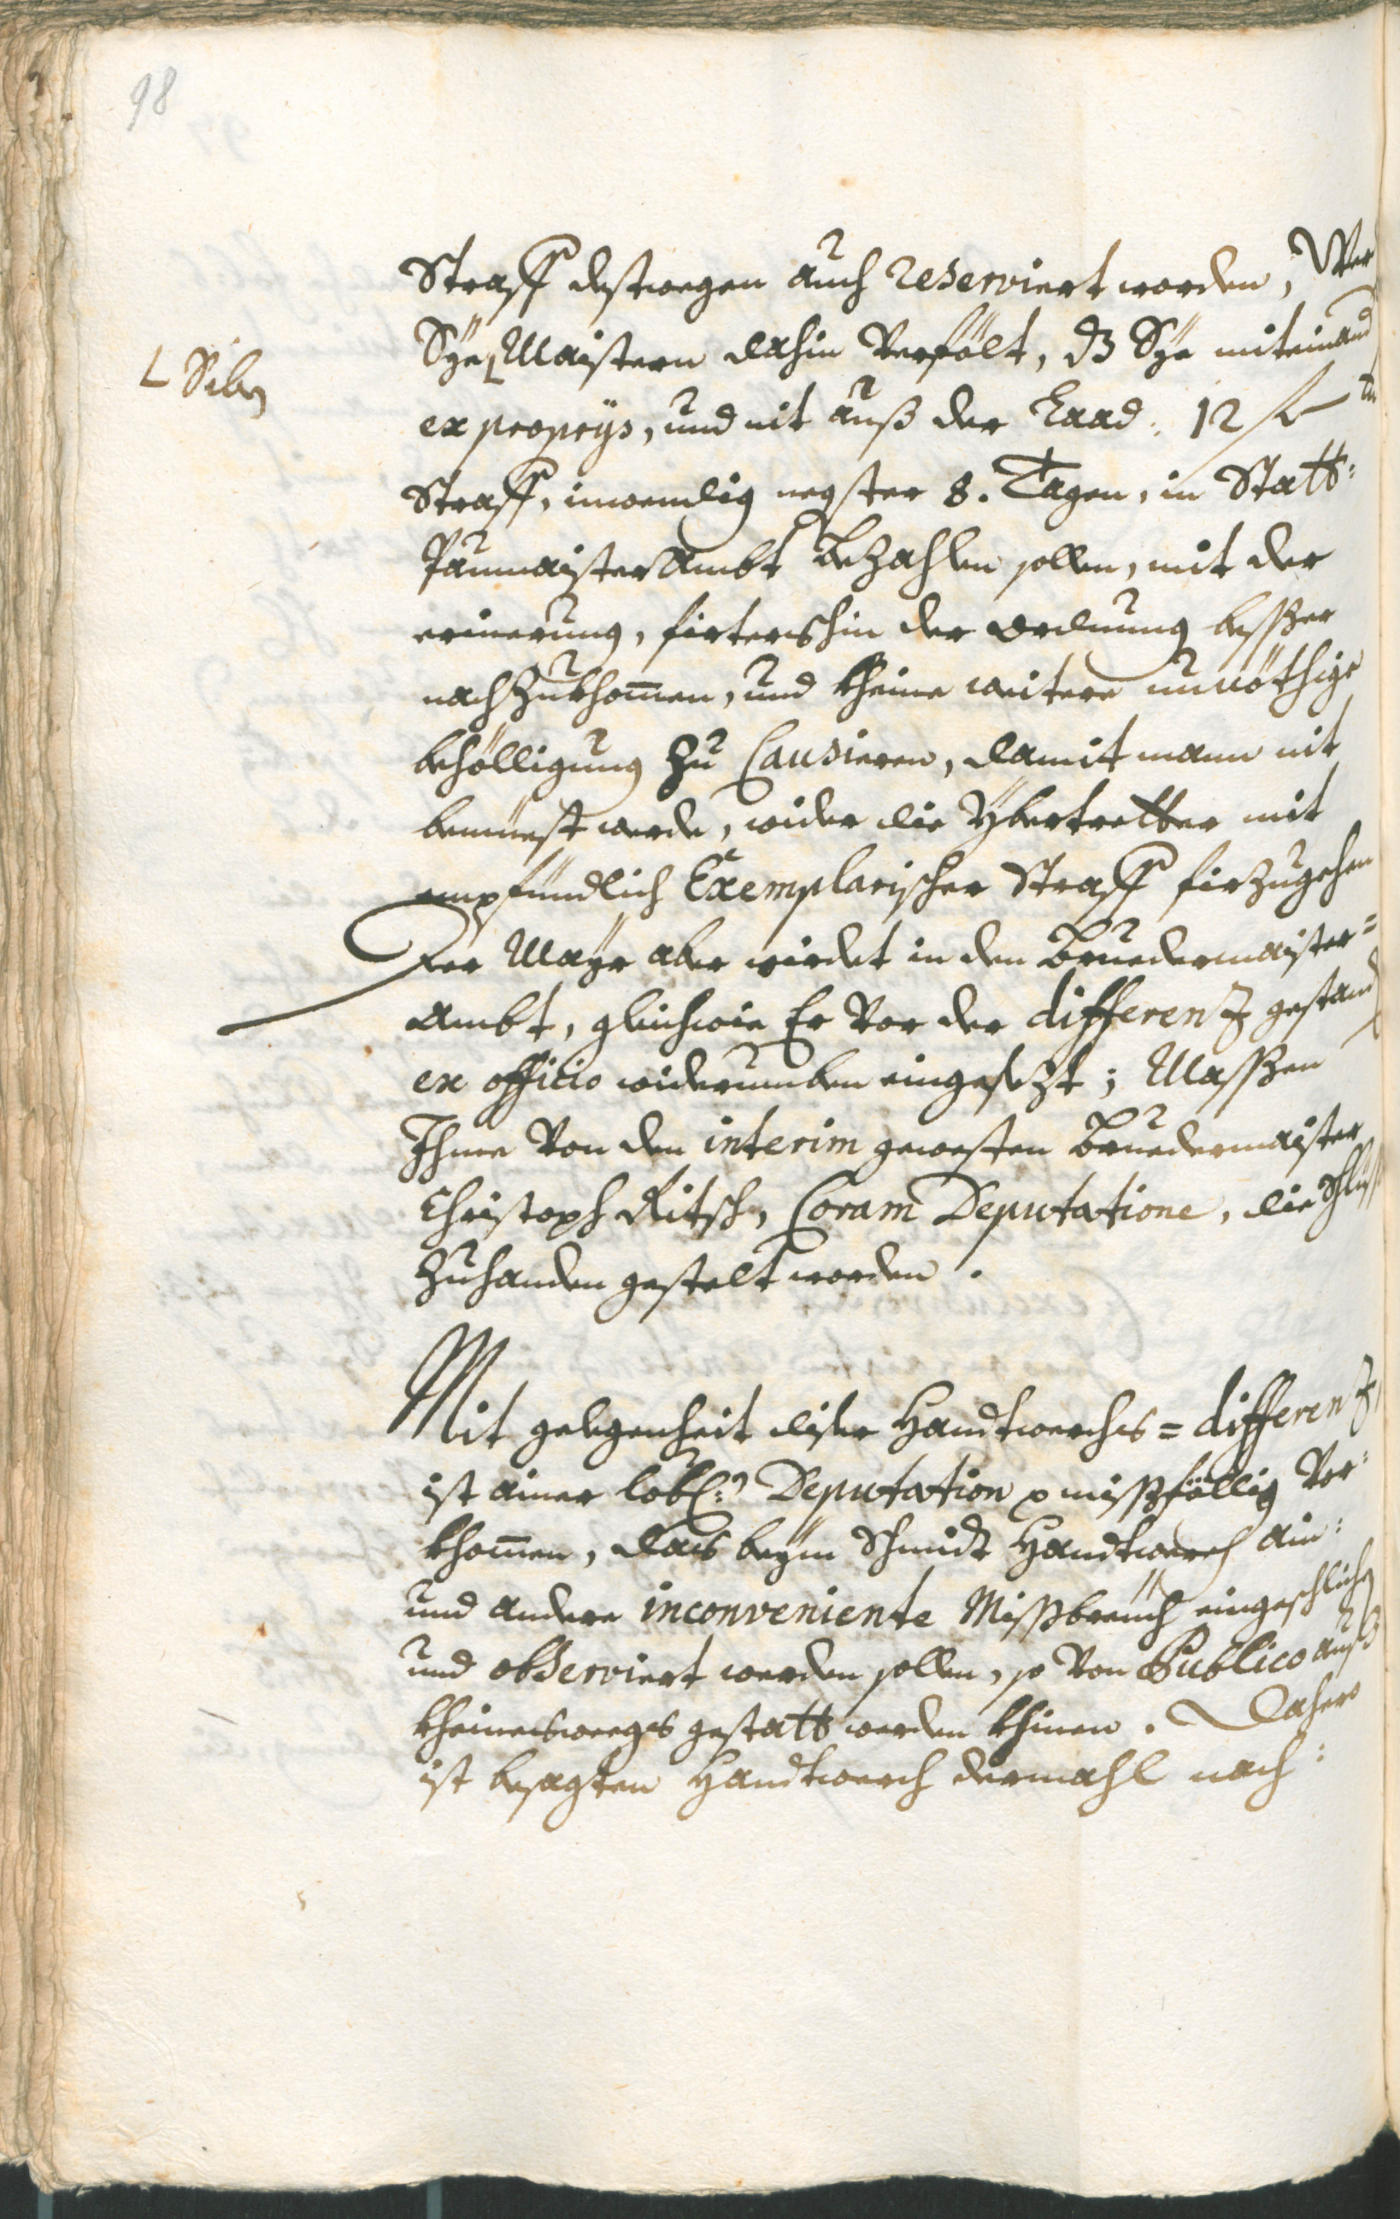 98
Straff destwegen auch reserviert worden, Wer
Sÿe Maistern dahin Verfölt, dz Sÿe miteinand
L Siben
ex proprÿs, und nit auß der Laad. 12 f
Straff, inwendig negster 8. Tagen, in Statt=
Paumaister Ambt bezahlen sollen, mit der
erinerung, firtershin der ordnung besßer
nachzukhom̄en, und kheine weitere unnöthige
behölligung zu Causieren, damit mann nit
bemüest werde, wider die Ÿbertretter mit
empfündlich Exemplarischer Straff firzugehen
Der Maÿr aber wirdet in den Bruedermaister=
Ambt, gleichwie Er Vor der differenz gestand
ex officio widerumben eingesezt; Massßen
Ihme Von den interim gewesten Bruedermaister
Christoph Ritsch, Coram Deputatione, die Schlüss
zuhanden gestelt worden.
Mit gelegenheit diser Handtwerchs=differenz
ist ainer lobl: Deputation mißfällig Vor=
khom̄en, das beÿm Schmidt Handtwerch ain=
und andere inconveniente Missbreüch eingeschlichen
und observiert werden sollen, so Von Publico auß
kheinesweegs gestatt werden khinen. Dahero
ist besagten Handtwerch dermahl nach=